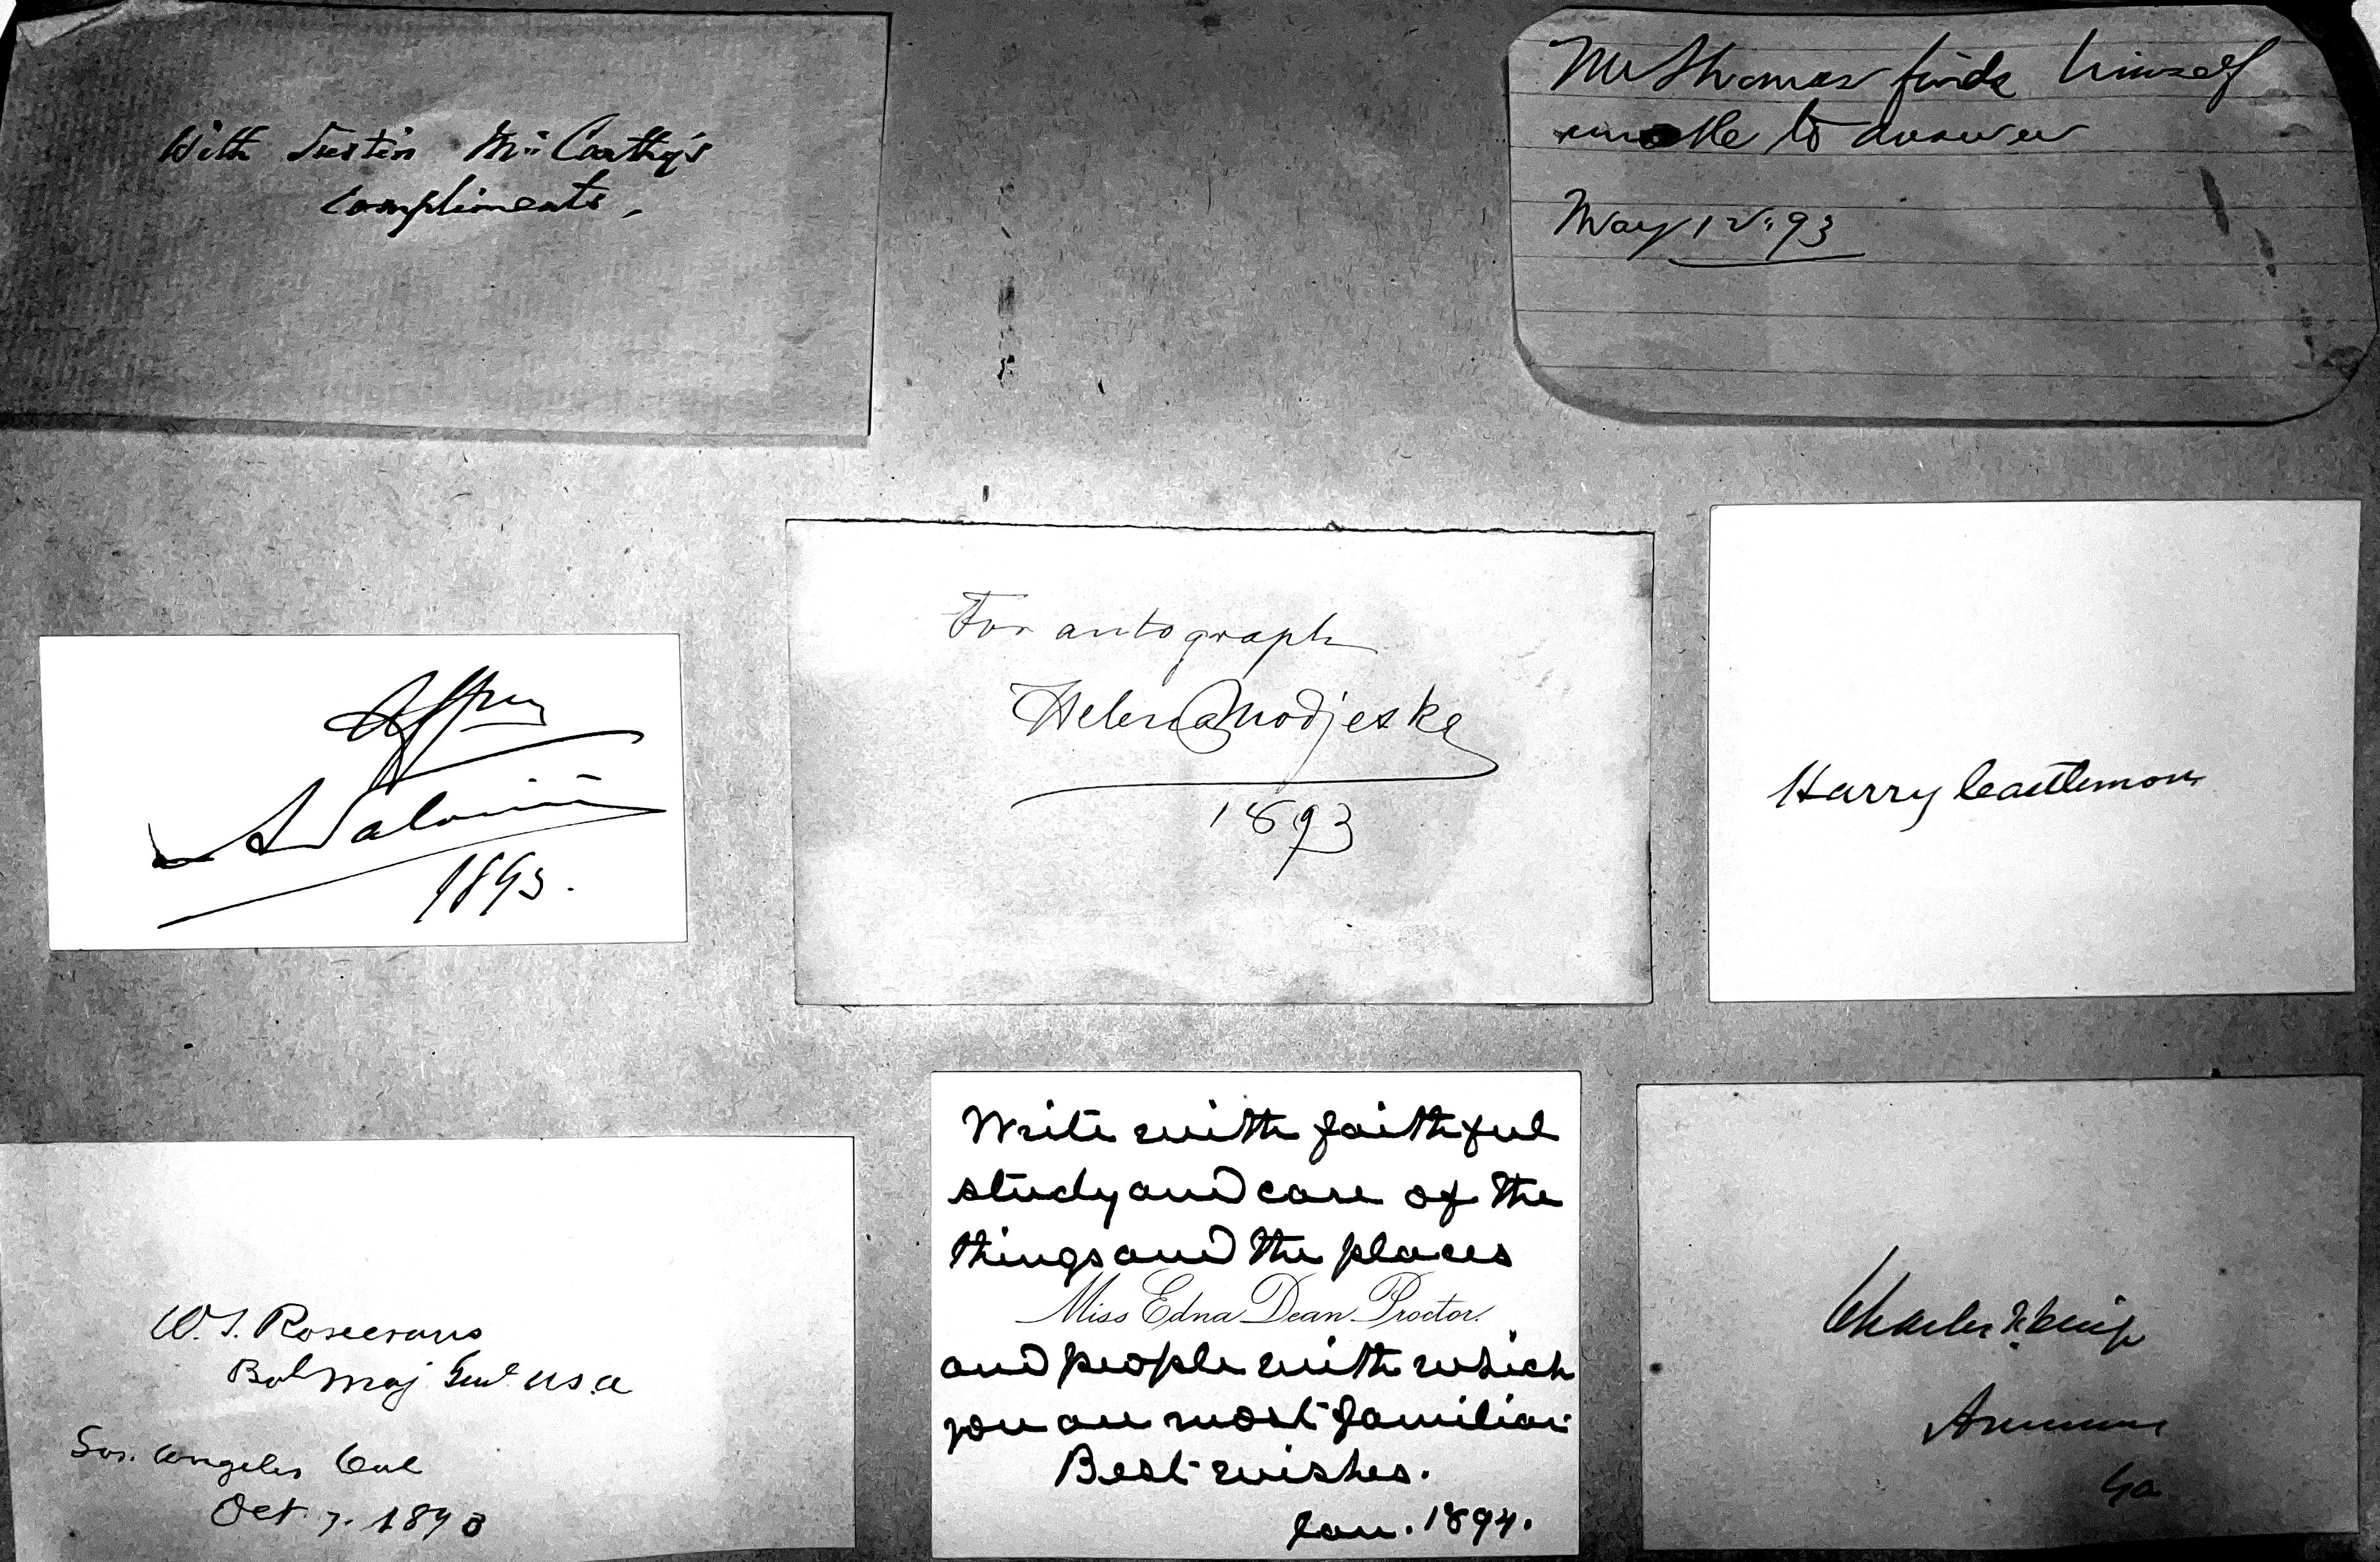 With Justin McCarthy's
compliments,
Mr Thomas finds himself
unable to answer
May 12: 93
For autograph
Helena Modjeska
1893
Harry Castlemon
A Salvini
1893.
W. S. Rosecrans
Maj Genl USA
Los. Angeles Cal
Oct. 7. 1893
Write with faithful
study and care of the
things and the places
Miss Edna Dean Proctor.
and people with which
you are most familiar.
Best wishes.
Jan. 1894.
Charles
Ga